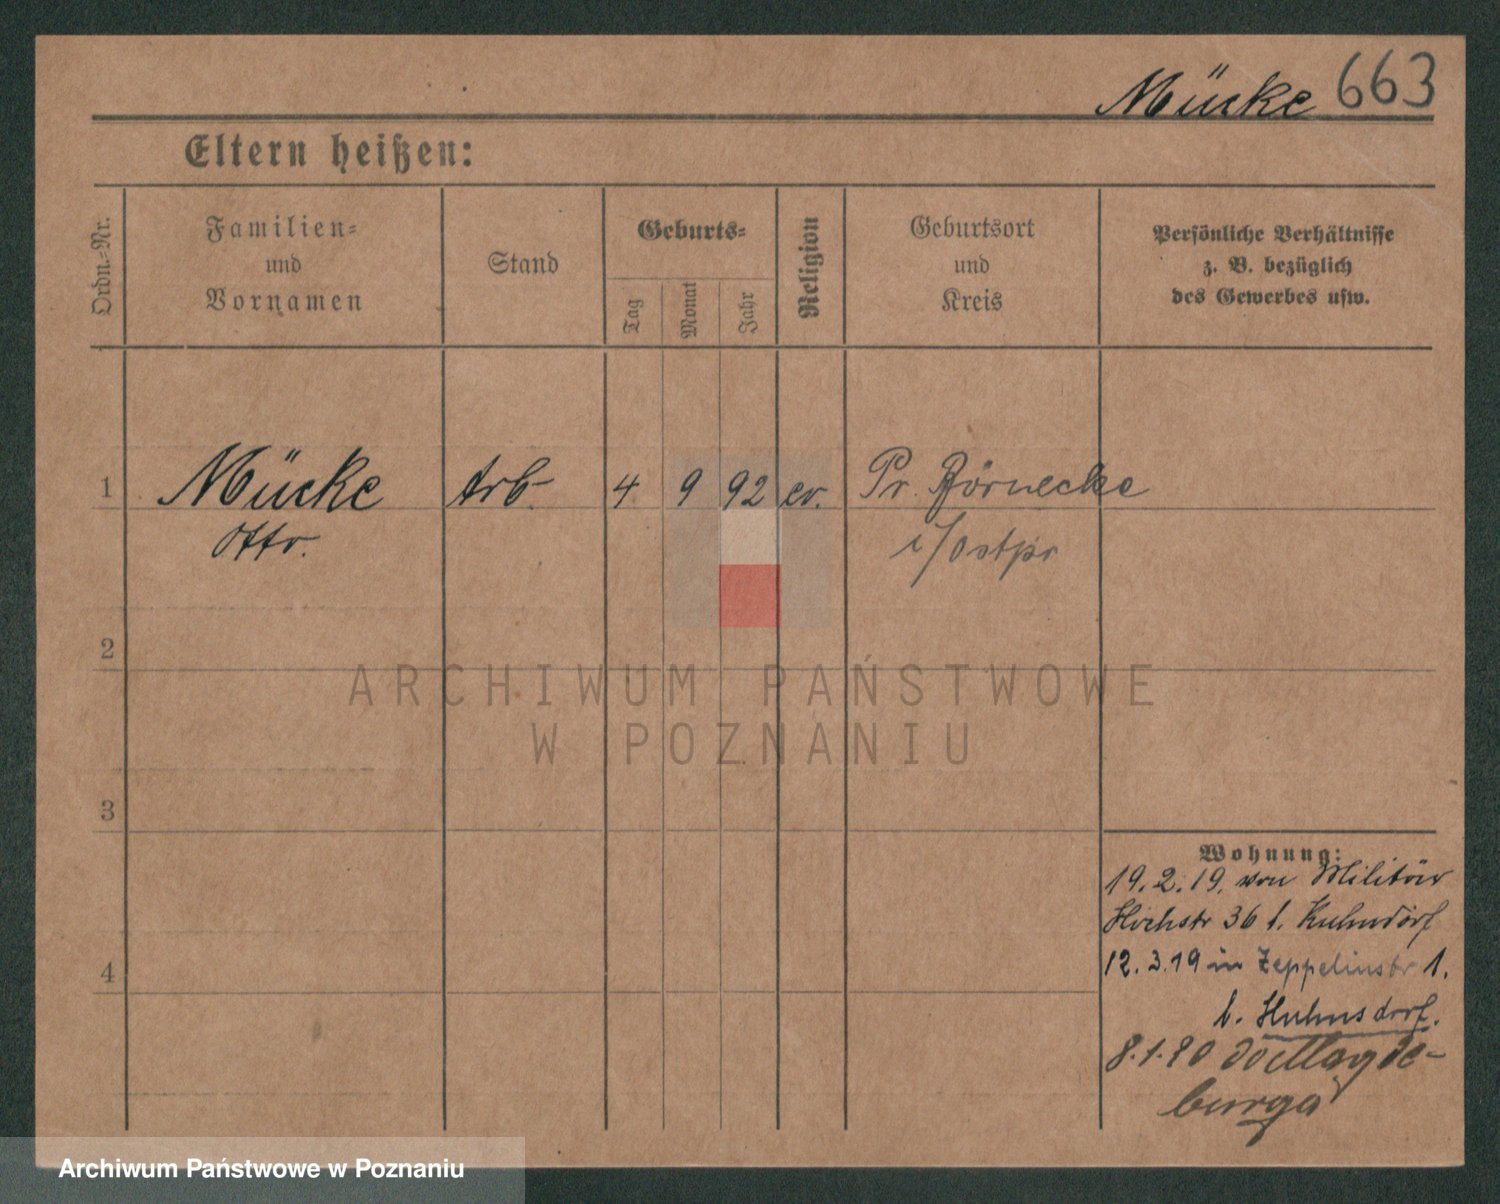 Mücke 663
Eltern heißen:
Ordn.-Nr.
Familien-
und
Vornamen
Stand
Geburts-
Tag
Monat
Jahr
Religion
Geburtsort
und
Kreis
Persönliche Verhältnisse
z. B. bezüglich
des Gewerbes usw.
1 Mücke Arb. 4 9 92 ev. Pr. Börnecke
Otto. i/Ostpr
2
3
4
Wohnung:
19.2.19. von Militär
Hochstr 36 b. Kuhndorf
12.3.19 in Zeppelinstr 1.
b. Huhnsdorf.
8.1.20 do Magde-
burga
ARCHIWUM PAŃSTWOWE
W POZNANIU
Archiwum Państwowe w Poznaniu